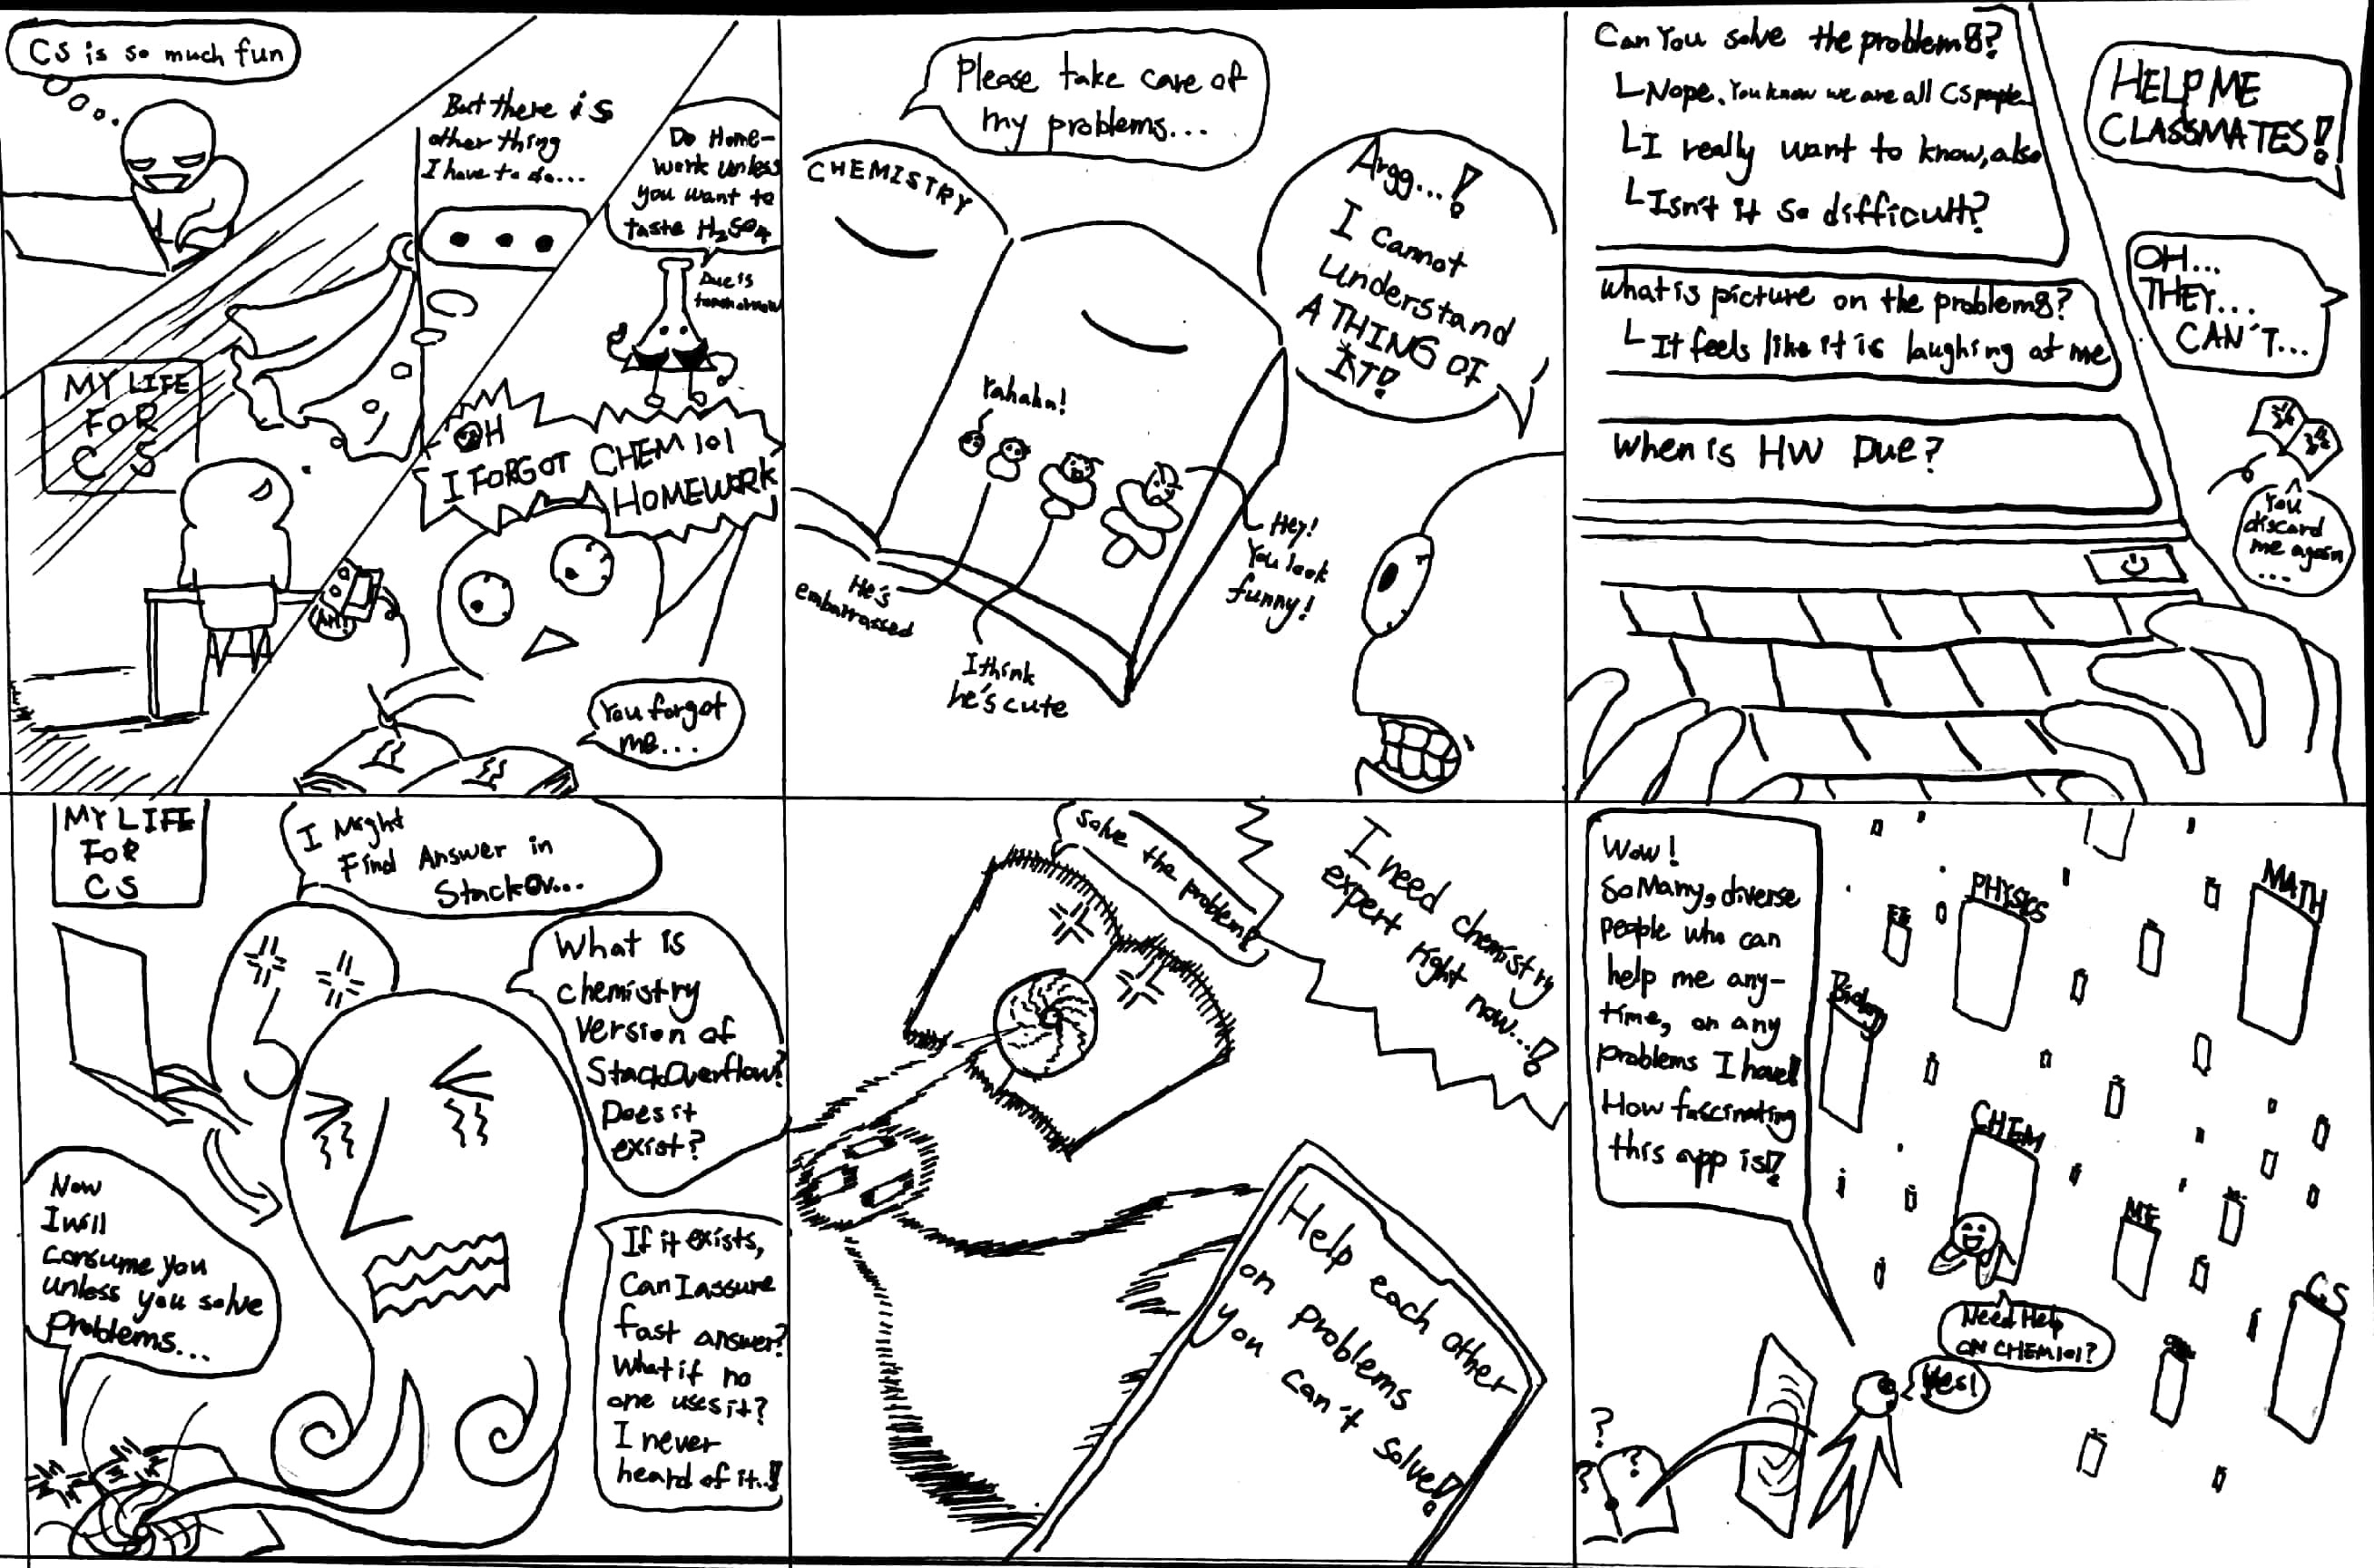 CS is so much fun
But there is
other thing
I have to do...
Do Home-
work unless
you want to
taste H2SO4
Due is
tomorrow
MY LIFE
FOR
CS
OH
I FORGOT CHEM101
HOMEWORK
AH!
You forgot
me...
Please take care of
my problems...
CHEMISTRY
Argg...!
I cannot
understand
A THING OF
IT!
Yahaha!
He's
embarrassed
I think
he's cute
Hey!
You look
funny!
Can You solve the problem8?
Nope. You know we are all CS people.
I really want to know, also
Isn't it so difficult?
What is picture on the problem8?
It feels like it is laughing at me
When is HW Due?
HELP ME
CLASSMATES!
OH...
THEY...
CAN'T...
You
discard
me again
...
MY LIFE
FOR
CS
I Might
Find Answer in
StackOv...
What is
chemistry
version of
StackOverflow?
Does it
exist?
Now
I will
consume you
unless you solve
Problems...
If it exists,
Can I assure
fast answer?
What if no
one uses it?
I never
heard of it..!!
Solve the problem!
I need chemistry
expert right
now...!
Help each other
on problems
you can't solve!
Wow!
So Many, diverse
people who can
help me any-
time, on any
problems I have!!
How fascinating
this app is!!
PHYSICS
MATH
EE
Biology
CHEM
ME
CS
Need Help
ON CHEM101?
Yes!
?
?
?